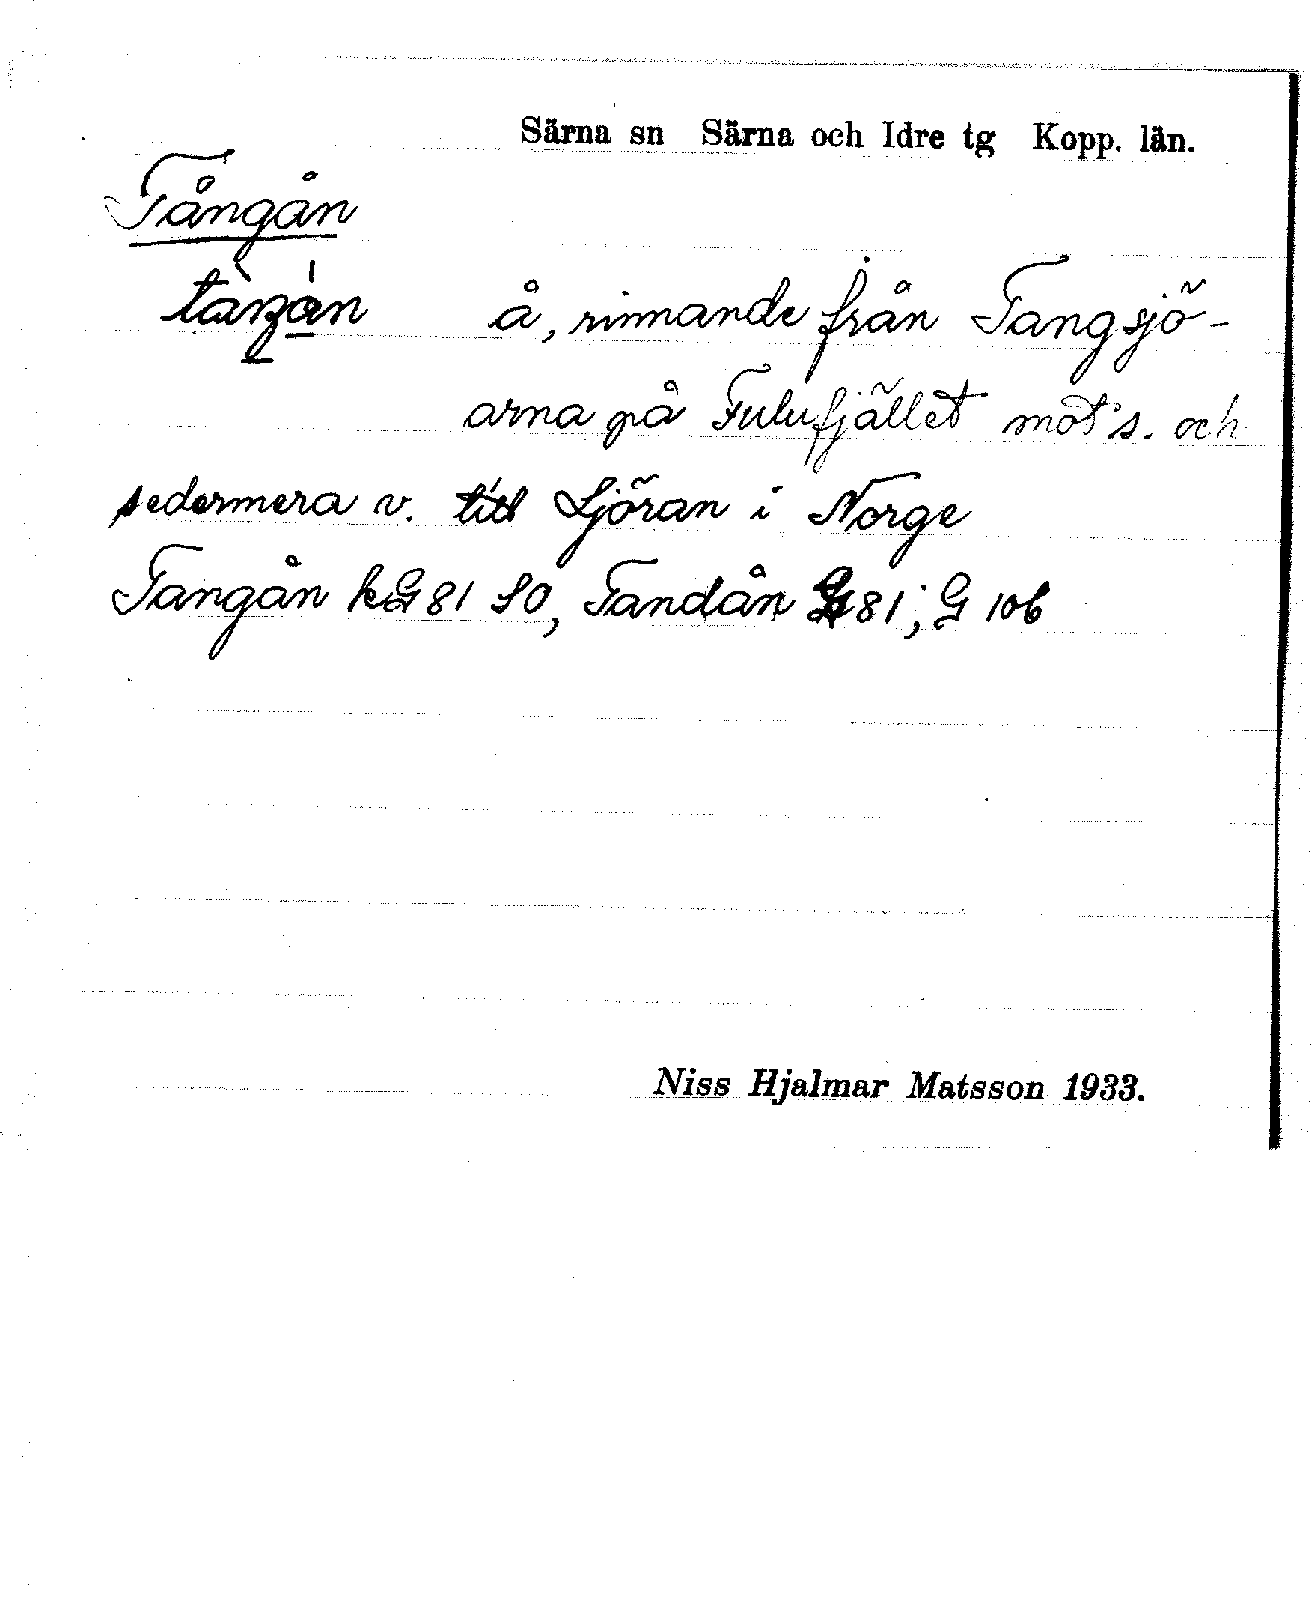 Särna sn Särna och Idre tg Kopp. län.
Tångån
å, rinnande från Tangsjö-
arna på Fulufjället mot s. och
sedermera v. till Ljöran i Norge
Tangån kG 81 SO, Tandån G 81; G 106
Niss Hjalmar Matsson 1933.